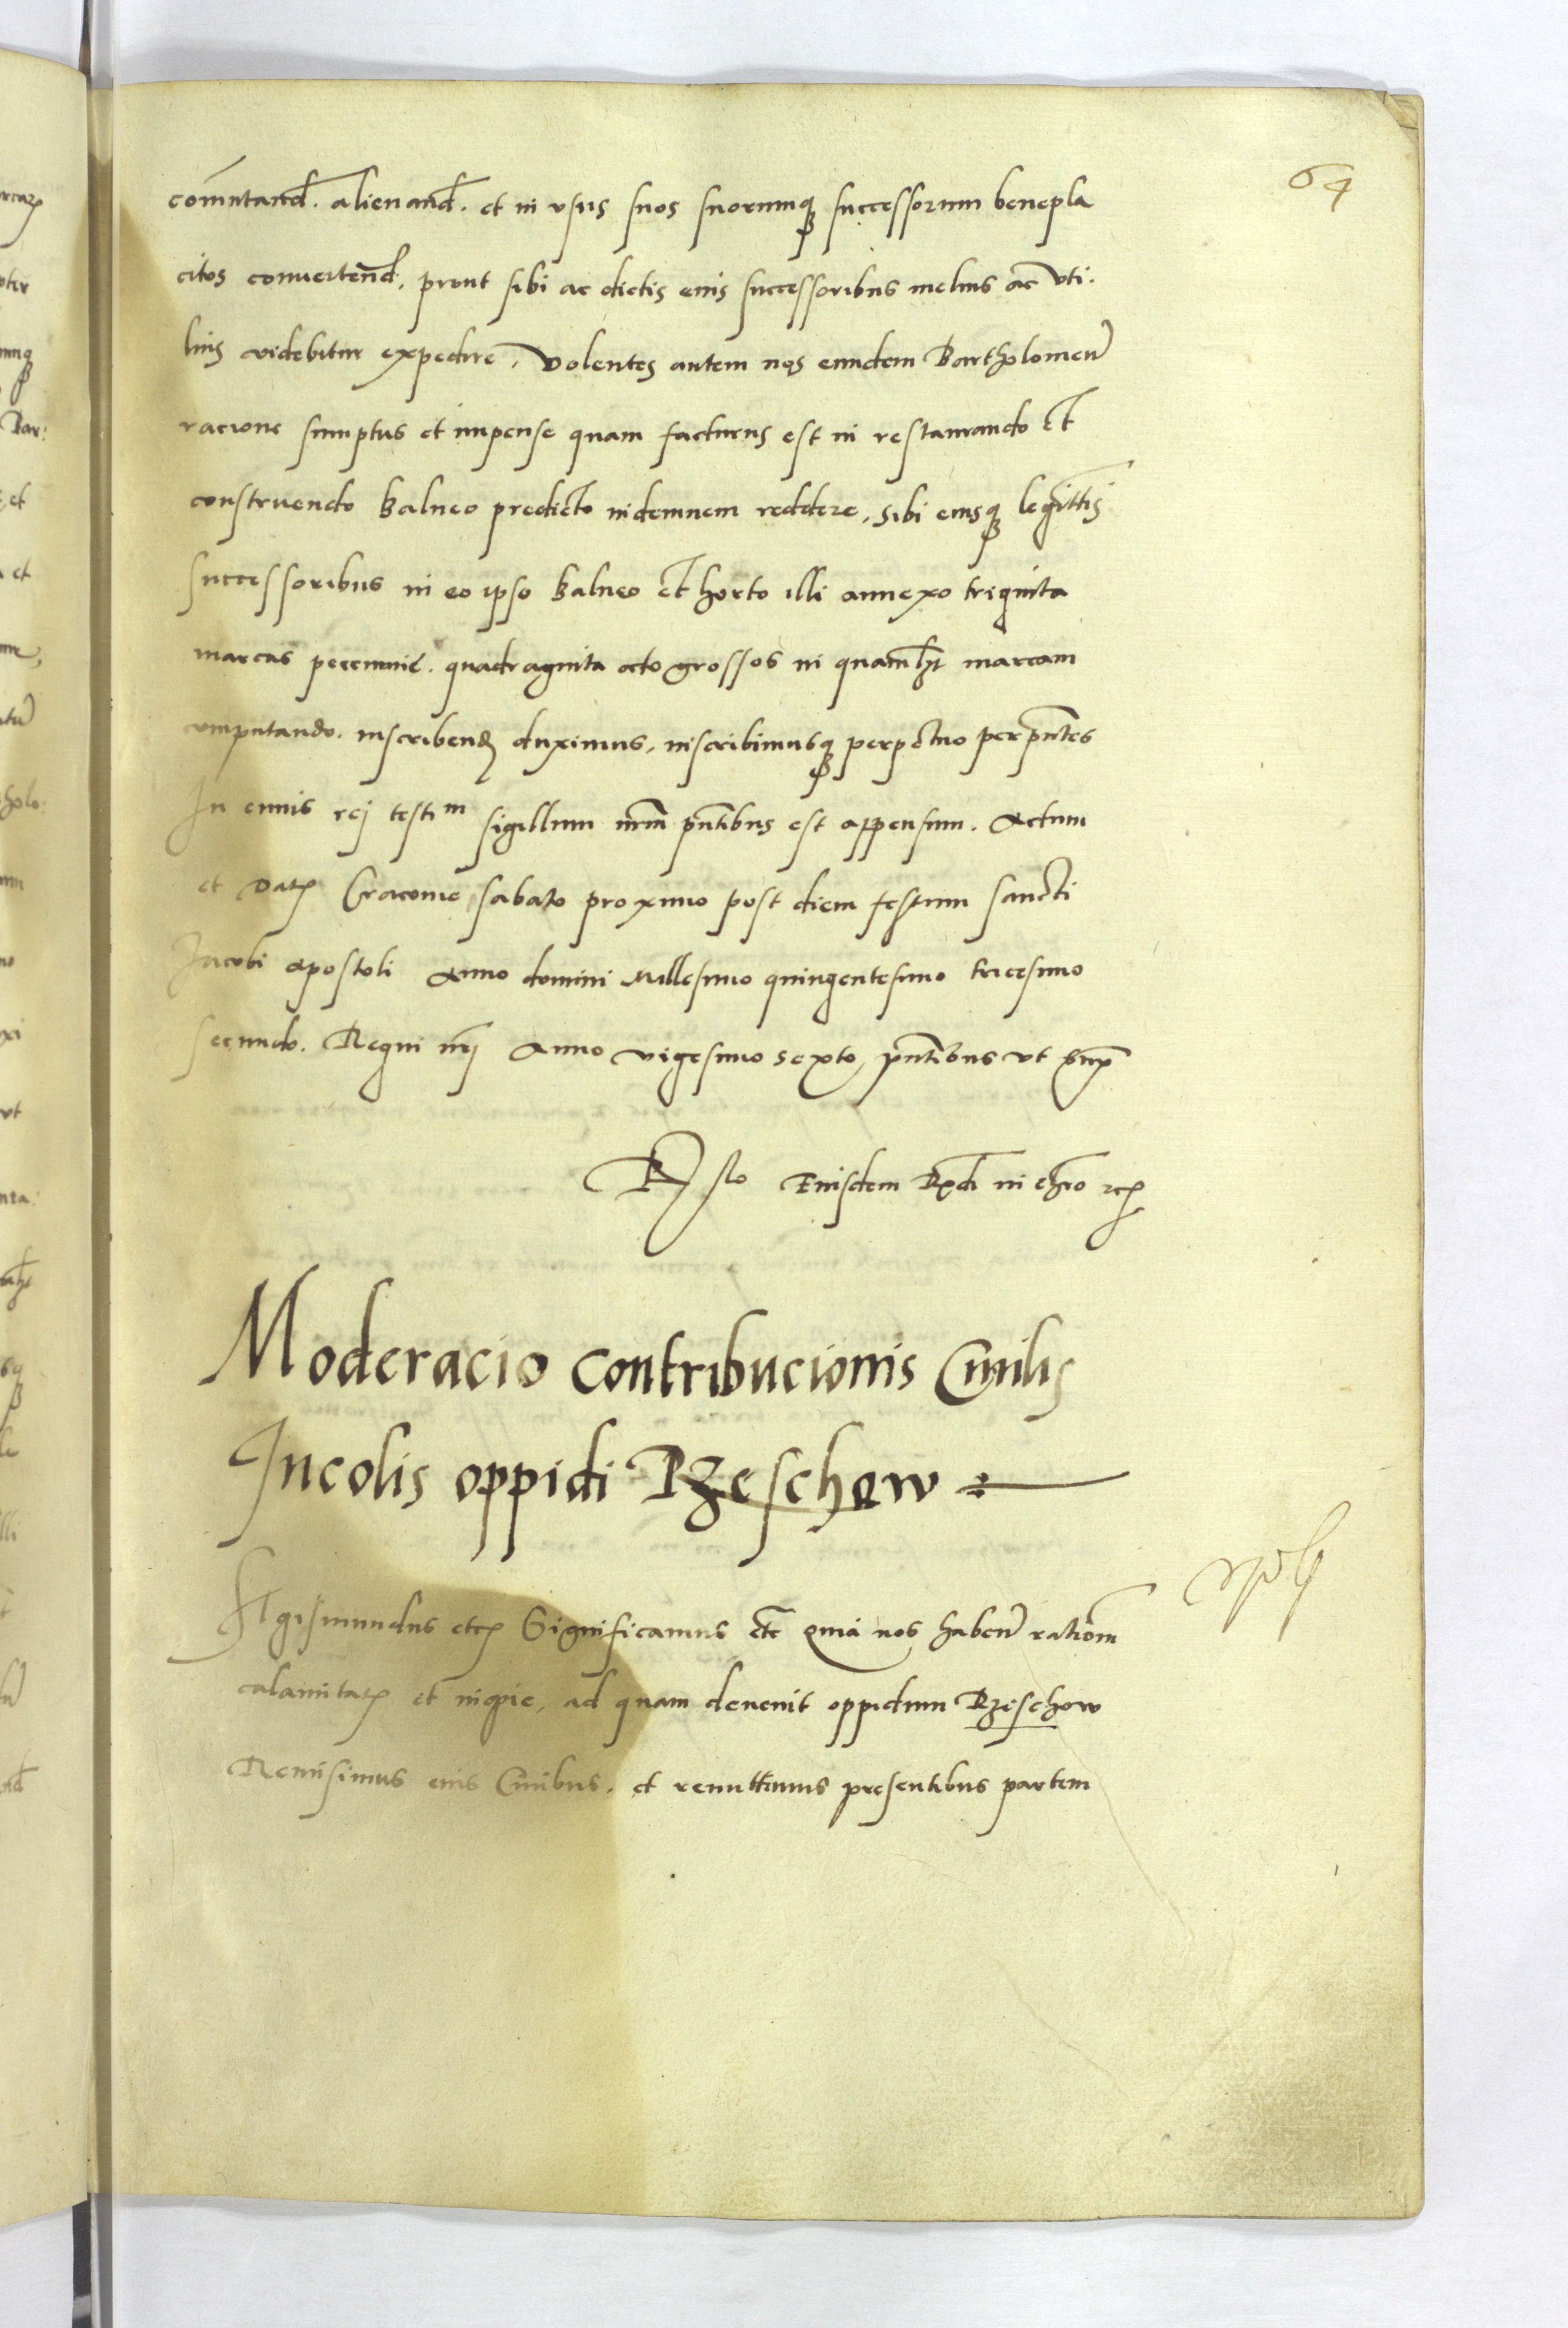 64
com̄utand. alienand. et in vsus suos suorumq successorum benepla
citos conuertend, prout sibi ac dictis eius successoribus melius ac vti.
lius videbitur expedire. Volentes autem nos eundem Bartholomeu
racione sumptus et impense quam facturus est in restaurando et
construendo balneo predicto indemnem reddere, sibi eiusq legittis
successoribus in eo ipso balneo et horto illi annexo triginta
marcas pecunie. quadraginta octo grossos in quamlzt marcam
computando. inscribend duximus, inscribimusq perpetuo per pn̄tes
In cuius rej testim sigillum nrm̄ pn̄tibus est appensum. Actum
et Dat Cracouie sabato proximo post diem festum sancti
Jacobi apostoli Anno domini Millesimo quingentesimo tricesimo
secundo. Regni nrj Anno vigesimo sexto, pn̄tibus vt sup
Rlo Eiusdem Rxdi in chro etc
Moderacio contribucionis Ciuilis
Incolis oppidi Rzeschow
Sigismundus etc Significamus etc Quia nos haben rationem
calamitat et inopie, ad quam deuenit oppidum Rzeschow
Remisimus eius Ciuibus. et remittimus presentibus partem